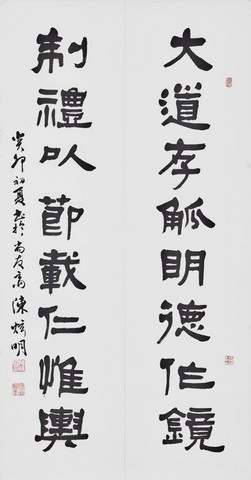 大道存觚明德作鏡
制禮以節載仁惟輿
癸卯初夏書於尚友齋陳炫明